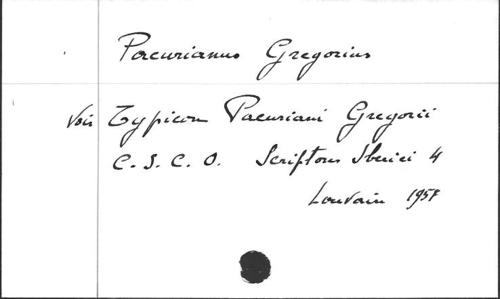 Pacurianus Gregorius
Voir Typicon Pacuriani Gregorii
C. S. C. O. Scriptores Iberici 4
Louvain 1954